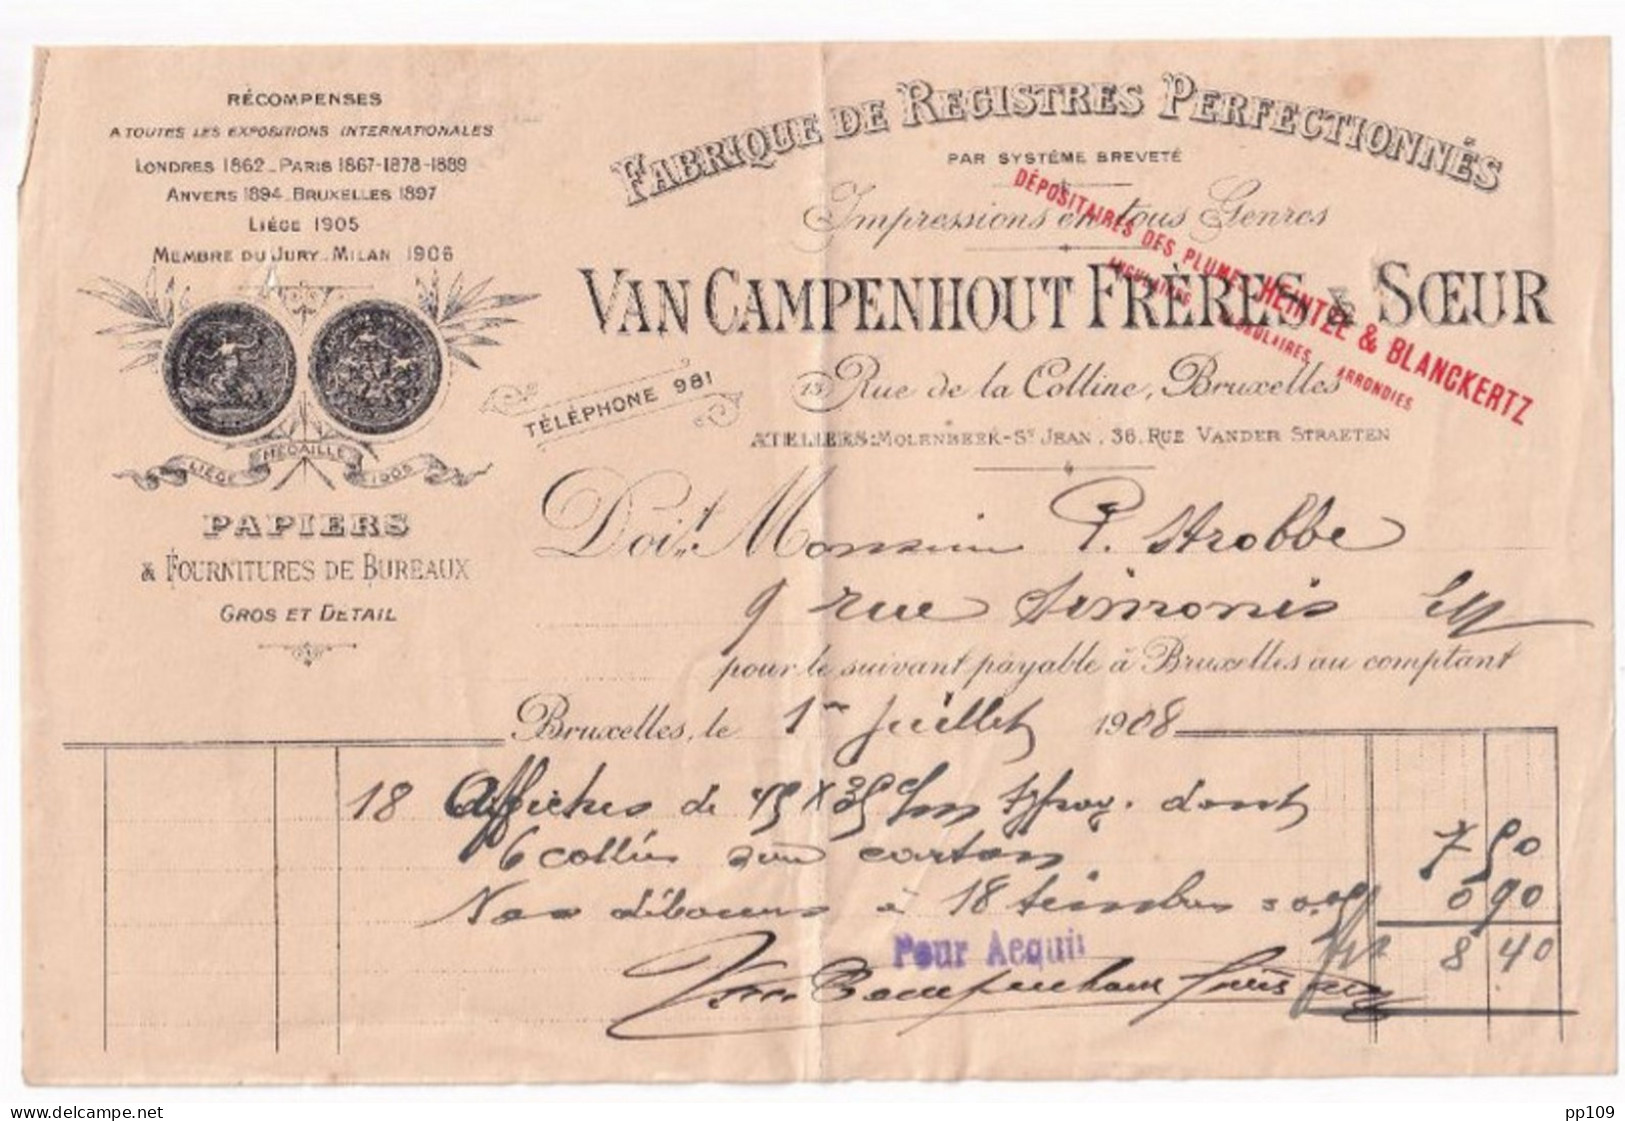 RÉCOMPENSES
A TOUTES LES EXPOSITIONS INTERNATIONALES
LONDRES 1862_PARIS 1867-1878-1889
ANVERS 1894_BRUXELLES 1897
LIÉGE 1905
MEMBRE DU JURY_MILAN 1906
LIÉGE MÉDAILLE 1905
PAPIERS
& FOURNITURES DE BUREAUX
GROS ET DETAIL
FABRIQUE DE REGISTRES PERFECTIONNÉS
PAR SYSTÈME BREVETÉ
Impressions en tous Genres
DÉPOSITAIRES DES PLUMES HEINTZE & BLANCKERTZ
ANGULAIRES ARRONDIES
VAN CAMPENHOUT FRÈRES & SŒUR
TÉLÉPHONE 981
13, Rue de la Colline, Bruxelles
ATELIERS: MOLENBEEK-ST JEAN, 36, RUE VANDER STRAETEN
Doit Monsieur P. Strobbe
9 rue Simonis
pour le suivant payable à Bruxelles au comptant
Bruxelles, le 1er Juillet 1908
18 Affiches de 45 x 35 c/m dont
6 collées sur carton 7 50
Nos débours à 18 timbres 0 90
Pour Acquit 8 40
Van Campenhout frères
delcampe.net
pp109